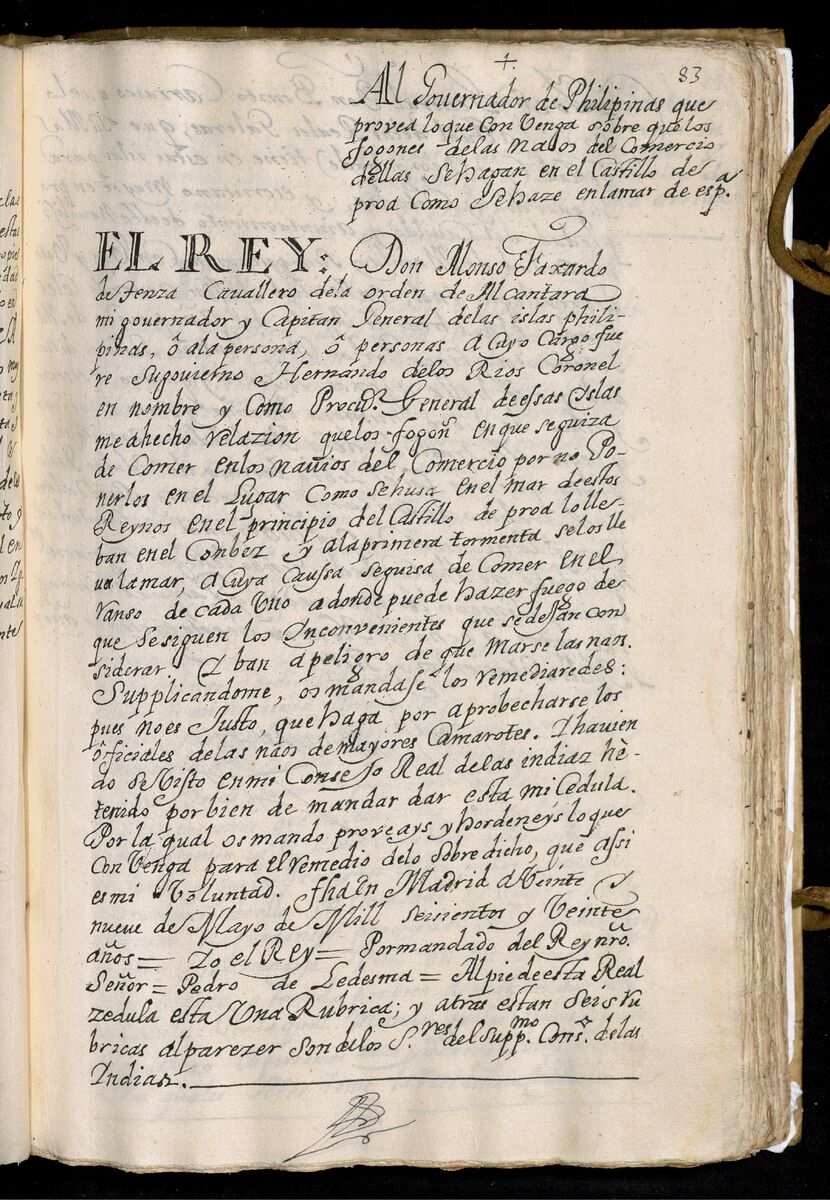 +
83
Al Governador de Philipinas que
provea lo que Con Venga sobre que los
fogones delas Naos del Comercio
dellas Sehagan en el Castillo de
proa Como Sehaze enlamar de espª.
EL REY: Don Alonso Faxardo
de tenza Cavallero dela orden de Alcantara
mi governador y Capitan General delas islas phili-
pinas, ô ala persona, ô personas a Cuyo Cargo fue
re sugovierno Hernando delos Rios Coronel
en nombre y Como Procuor. General deessas Yslas
meahecho relazion quelos fogons en que seguiza
de Comer enlos navios del Comercio por no Po-
nerlos en el Lugar Como sehusa en el mar de estos
Reynos en el principio del Castillo de proa lo lle-
ban en el Conbéz y ala primera tormenta se los lle
va la mar, a Cuya Caussa seguisa de Comer en el
ranso de cada Uno adonde puede hazer fuego de
que se siguen los Ynconvenientes que se dejan con
siderar. Y ban apeligro de que marse las naos.
Supplicandome, os mandase los remediaredes:
pues no es Justo, que haga por aprobecharse los
ôficiales de las naos demayores Camarotes. Y havien
do se Visto en mi Consejo Real de las indiaz hè-
tenido por bien de mandar dar esta mi Cedula.
Por la qual os mando proveays y hordeneys lo que
Con Venga para el remedio delo sobre dicho, que assi
es mi Voluntad. fha en Madrid a Veinte Y
nueve de Mayo de Mill seisientos y Veinte
años = Yo el Rey = Pormandado del Rey nrõ.
Señor = Pedro de Ledesma = Al pie de esta Real
zedula esta Una Rubrica; y atras estan seis ru
bricas alparezer son delos S.res del Supp.mo Cons.º delas
Indiaz.